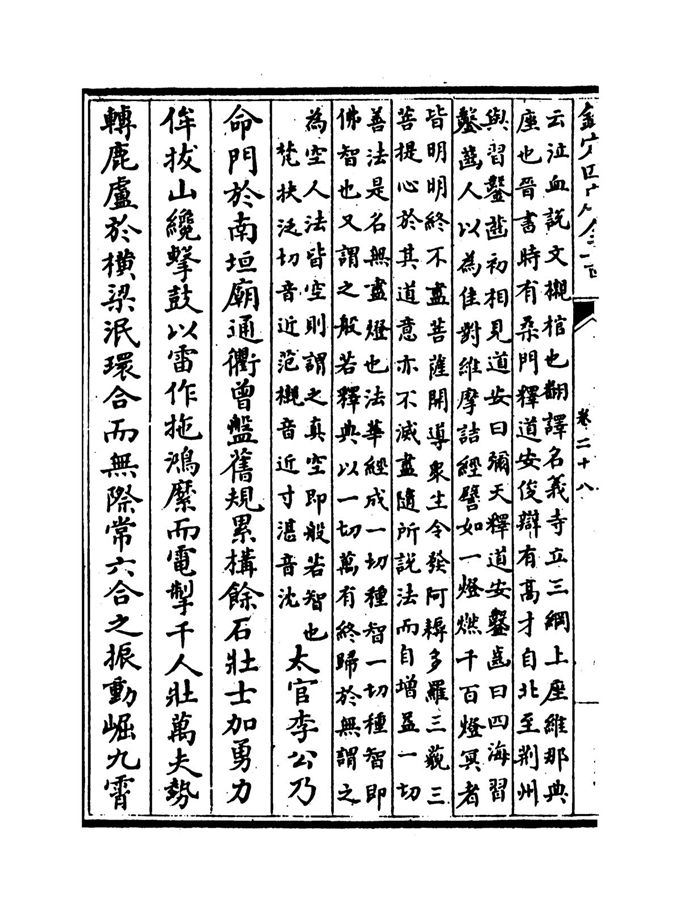 欽定四庫全書
卷二十八
云泣血説文櫬棺也翻譯名義寺立三綱上座維那典
座也晉書時有桑門釋道安俊辯有髙才自北至荆州
與習鑿齒初相見道安曰彌天釋道安鑿齒曰四海習
鑿齒人以為佳對維摩詰經譬如一燈燃千百燈冥者
皆明明終不盡菩薩開導衆生令發阿耨多羅三藐三
菩提心於其道意亦不滅盡隨所説法而自增益一切
善法是名無盡燈也法華經成一切種智一切種智即
佛智也又謂之般若釋典以一切萬有終歸於無謂之
為空人法皆空則謂之真空即般若智也
梵扶泛切音近范櫬音近寸湛音沈
太官李公乃
命門於南垣廟通衢曾盤舊規累構餘石壯士加勇力
侔拔山纔擊鼓以雷作拖鴻縻而電掣千人壯萬夫勢
轉鹿盧於横梁泯環合而無際常六合之振動崛九霄